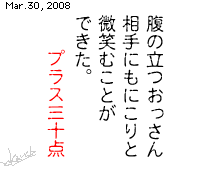 Mar.30, 2008
腹の立つおっさん
相手にもにこりと
微笑むことが
できた。
プラス三十点